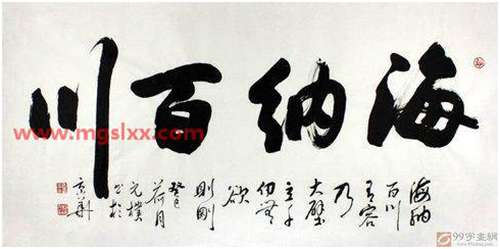 海纳百川
海納
百川
有容
乃
大壁
立千
仞無
欲
則剛
癸巳
荷月
元樸
书於
京華
www.mgslxx.com
99字画网